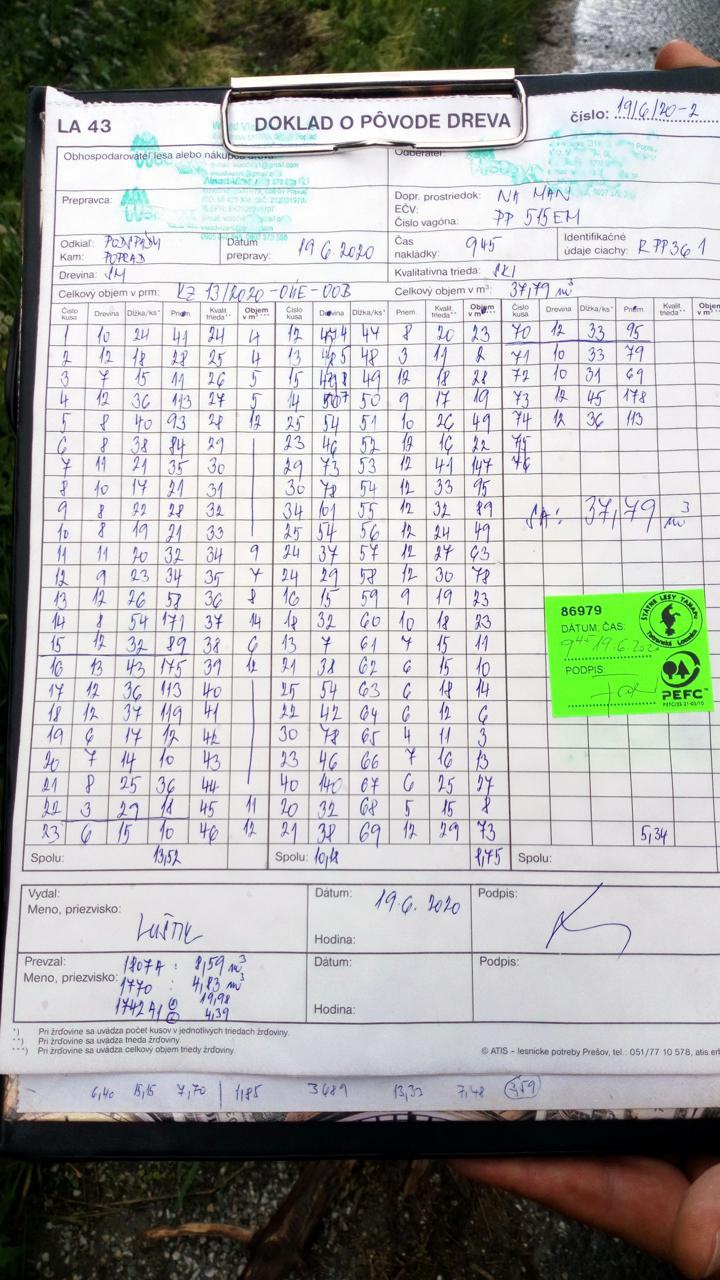 LA 43
DOKLAD O PÔVODE DREVA
číslo: 19/6/20-2
Obhospodarovateľ lesa alebo nákupca dreva:
Odberateľ:
Prepravca:
Dopr. prostriedok: NA MAN
EČV:
Číslo vagóna: PP 515EM
Odkiaľ: PODSPÁDY
Kam: POPRAD
Dátum prepravy: 19.6.2020
Čas nakládky: 945
Identifikačné údaje ciachy: R PP36 1
Drevina: SM
Kvalitatívna trieda: SKI
Celkový objem v prm: KZ 13/2020-04E-00B
Celkový objem v m³: 37,79 m³
Číslo kusa Drevina Dĺžka/ks* Priem. Kvalit. trieda** Objem v m³*** Číslo kusa Drevina Dĺžka/ks* Priem. Kvalit. trieda** Objem v m³*** Číslo kusa Drevina Dĺžka/ks* Priem. Kvalit. trieda**
1 10 24 41 24 4 12 44 8 20 23 70 12 33 95
2 12 18 28 25 4 13 48 3 11 2 71 10 33 79
3 7 15 11 26 5 15 49 12 18 28 72 10 31 69
4 12 36 113 27 5 14 50 9 17 19 73 12 45 178
5 8 40 93 28 12 25 54 51 10 26 49 74 12 36 113
6 8 38 84 29 23 46 52 12 16 22 75
7 11 21 35 30 29 73 53 12 41 147 76
8 10 17 21 31 30 78 54 12 33 95
9 8 22 28 32 34 101 55 12 32 89
SA: 37,79 m³
10 8 19 21 33 25 54 56 12 24 49
11 11 20 32 34 9 24 37 57 12 27 63
12 9 23 34 35 7 24 29 58 12 30 78
13 12 26 58 36 8 16 15 59 9 19 23
14 8 54 171 37 14 18 32 60 10 18 23
15 12 32 89 38 6 13 7 61 7 15 11
16 13 43 175 39 12 21 38 62 6 15 10
17 12 36 113 40 25 54 63 6 18 14
18 12 37 119 41 22 42 64 6 12 6
19 6 17 12 42 30 78 65 4 11 3
20 7 14 10 43 23 46 66 7 16 13
21 8 25 36 44 40 140 67 6 25 27
22 3 29 18 45 11 20 32 68 5 15 8
23 6 15 10 46 12 21 38 69 12 29 73 5,34
86979
ŠTÁTNE LESY TANAPU
Tatranská Lomnica
DÁTUM, ČAS:
9⁴⁵ 19.6.2020
PODPIS:
PEFC™
PEFC/22-21-03/10
Spolu: 13,52 Spolu: 10,18 8,75 Spolu:
Vydal:
Meno, priezvisko: LUŠTIK
Dátum: 19.6.2020
Hodina:
Podpis:
Prevzal:
Meno, priezvisko:
1807A : 8,59 m³
1770 : 4,83 m³
1742A1 19,98
4,39
Dátum:
Hodina:
Podpis:
*) Pri žrďovine sa uvádza počet kusov v jednotlivých triedach žrďoviny.
**) Pri žrďovine sa uvádza trieda žrďoviny.
***) Pri žrďovine sa uvádza celkový objem triedy žrďoviny.
© ATIS – lesnícke potreby Prešov, tel.: 051/77 10 578, atis.
6,40 15,15 7,70 | 1,85 3689 13,33 7,48